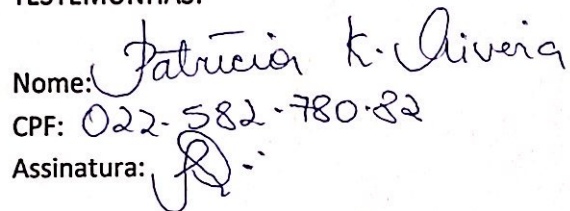 TESTEMUNHAS:
Nome: Patricia K. Oliveira
CPF: 022-582-780-82
Assinatura: